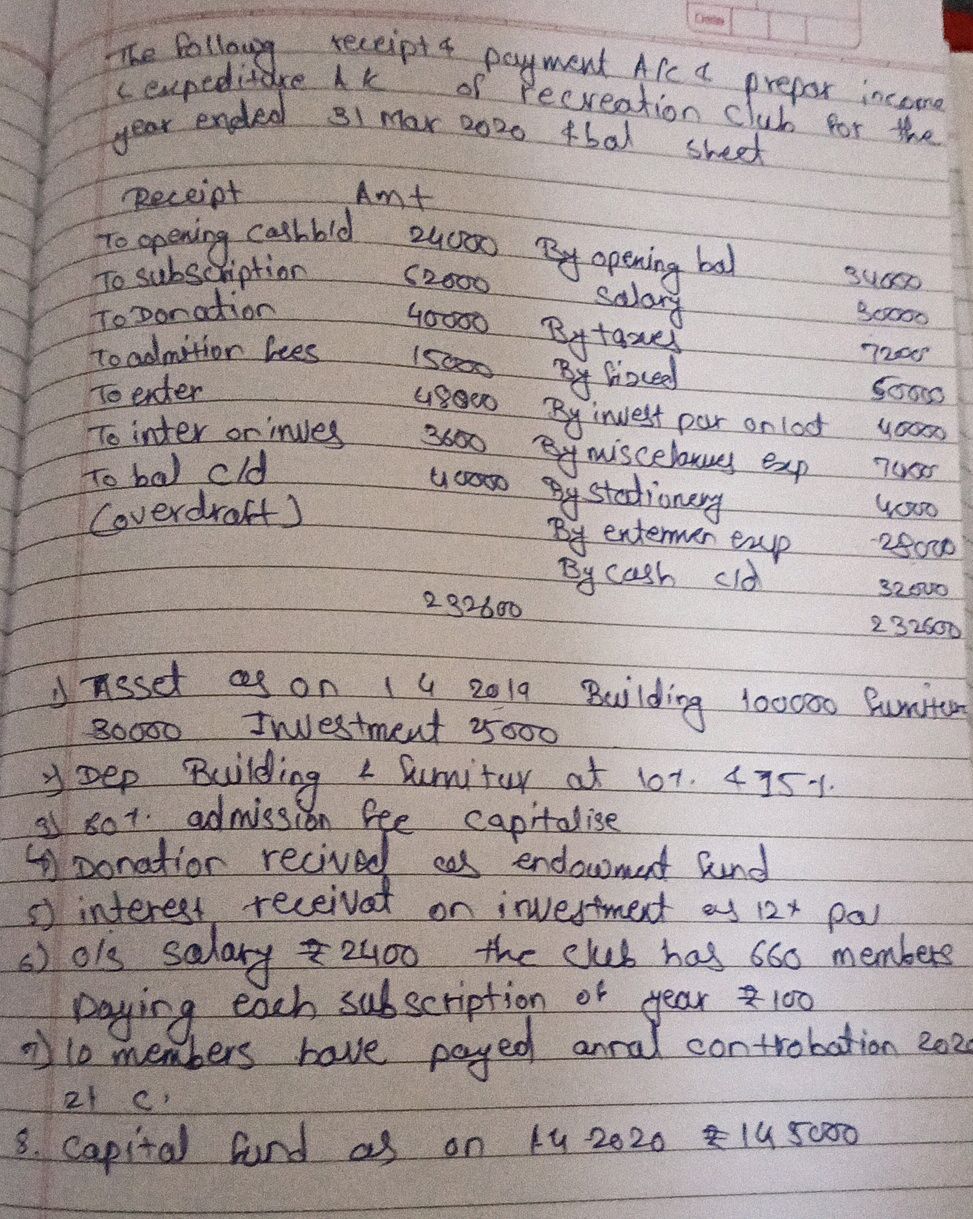 Date
The followg receipt & payment A/c & prepar income
& expeditare Ak of recreation Club for the
year ended 31 Mar 2020 & bal sheet
Receipt Amt
To opening cash b/d 24000 By opening bal 34000
To subscription 62000 salary 30000
To Donation 40000 By taxes 7200
To admition fees 15000 By fixed 50000
To enter 48000 By invest par on 40000
To inter on inves 3600 By exp 7400
To bal c/d 40000 By Stationery 4000
(overdraft) By exp 28000
By Cash c/d 32000
232600 232600
1) Asset as on 1 4 2019 Building 100000
30000 Investment 25000
2) Dep Building & furnitur at 10%. &
3) 80%. admission fee capitalise
4) Donation recived as endowment fund
5) interest on investment as 12%
6) o/s salary ₹ 2400 the club has 660 members
paying each subscription of year ₹ 100
7) 10 members have payed controbation 202
21 C.
8. Capital fund as on 1.4 2020 ₹ 145000